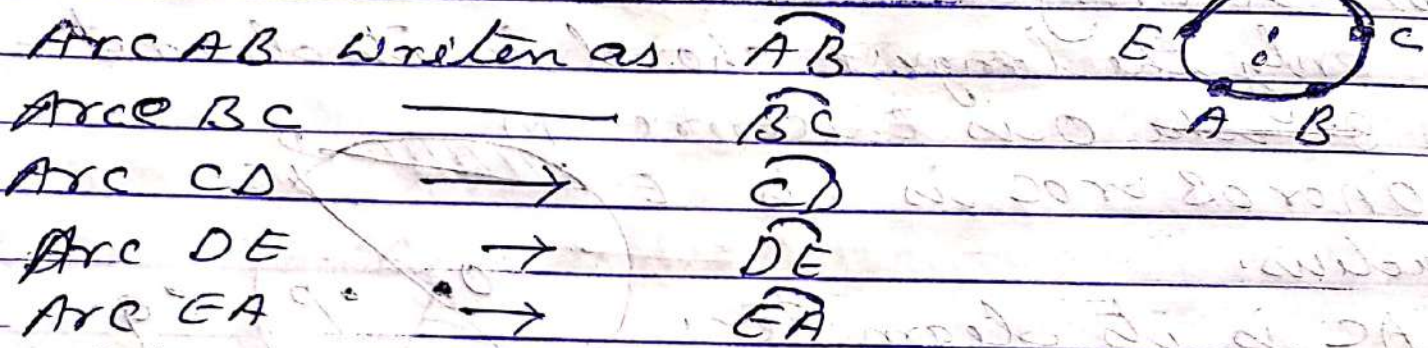 Arc AB writen as A͡B E C
Arce BC —— B͡C A B
Arc CD → C͡D
Arc DE → D͡E
Arc EA → E͡A